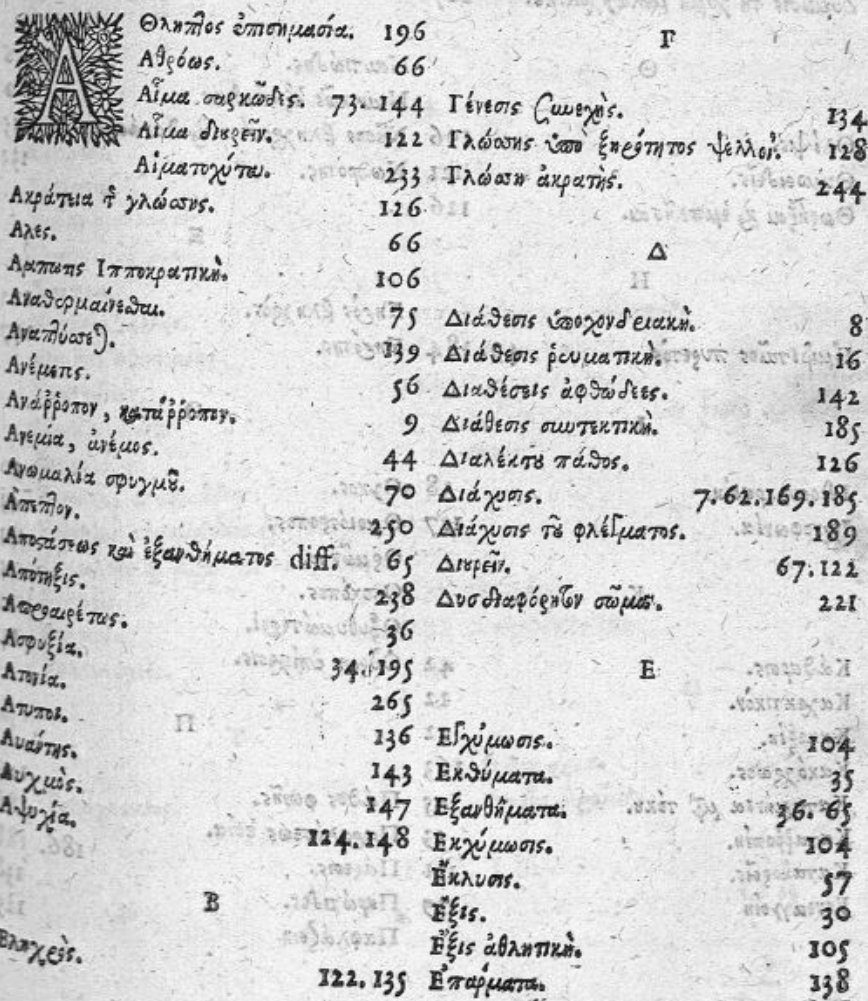 ΑΘληπτος ἐπισημασία. 196
Αθρόως. 66
Αἷμα σαρκῶδες. 73.144
Αἷμα διȣρεῖν. 122
Αἱματοχύται. 233
Ακράτεια τ̃ γλώσσης. 126
Αλες. 66
Αμπωτις Ιπποκρατική. 106
Αναθερμαίνεσθαι. 75
139
Ανέμετος. 56
Ανάῤῥοπον, κατάῤῥοπον. 9
Ανεμία, ἀνέμος. 44
Ανωμαλία σφυγμȣ̃. 70
Ἄπεπτον. 250
Αποςάσεως καὶ ἐξανθήματος diff. 65
Απότηξις. 238
Απροαιρέτως. 36
Ασφυξία. 34.195
Ατονία. 265
Ατυποι. 136
Αυάντης. 143
Αυχμὸς. 147
Αψυχία. 124.148
Β
Βληχρὸς. 122.135
Γ
Γένεσις συνεχὴς. 134
Γλώσσης ὑπὸ ξηρότητος ψελλοί. 128
Γλώσση ἀκρατὴς. 244
Δ
Διάθεσις ὑποχονδριακὴ. 8
Διάθεσις ῥευματικὴ. 16
Διαθέσεις ἀφθώδεες. 142
Διάθεσις συντεκτικὴ. 185
Διαλέκτȣ πάθος. 126
Διάχυσις. 7.62.169.185
Διάχυσις τȣ̃ φλέγματος. 189
Διȣρεῖν. 67.122
Δυσδιαφόρητον σῶμα. 221
Ε
Εἰχύμωσις. 104
Εκθύματα. 35
Εξανθήματα. 36.65
Εκχύμωσις. 104
Ἔκλυσις. 57
Ἕξις. 30
Ἕξις ἀθλητικὴ. 105
Ἐπάρματα. 138